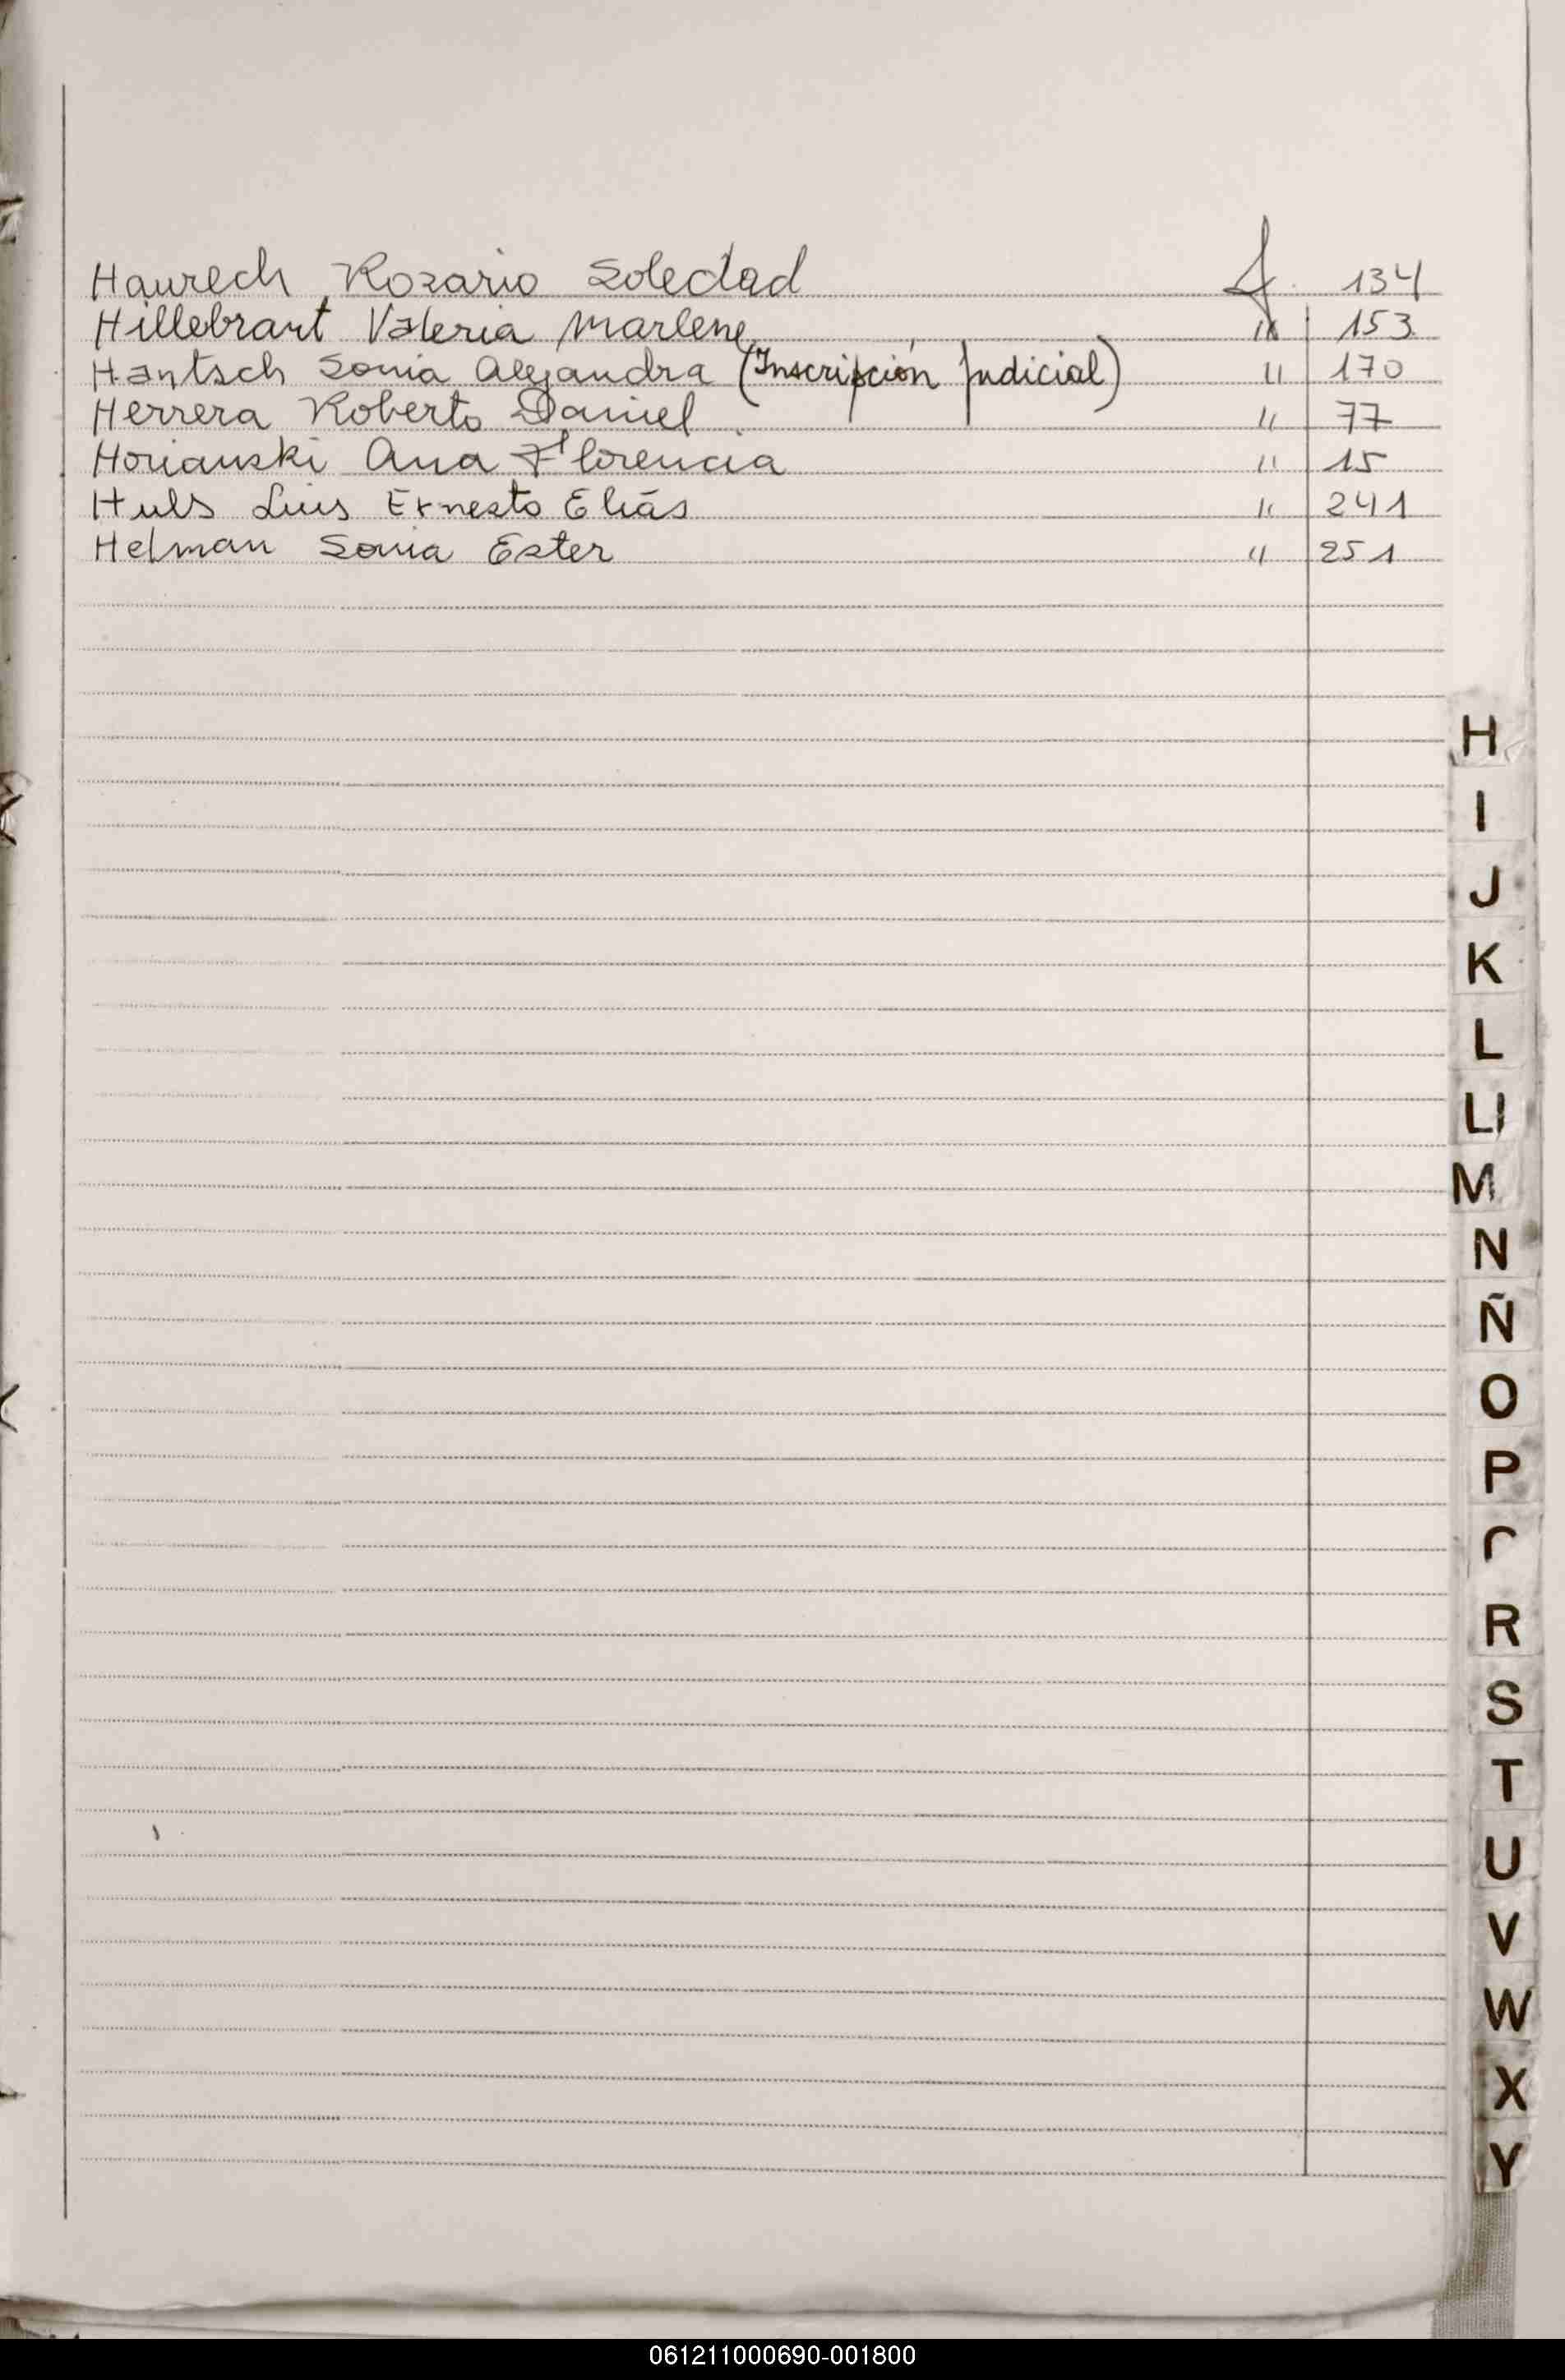 Haurech Rosario Soledad f. 134
Hillebrant Valeria Marlene " 153
Hantsch Sonia Alejandra (Inscripción Judicial) " 170
Herrera Roberto Daniel " 77
Horianski Ana Florencia " 15
Huls Luis Ernesto Eliás " 241
Helman Sonia Ester " 251
H
I
J
K
L
Ll
M
N
Ñ
O
P
R
S
T
U
V
W
X
Y
061211000690-001800